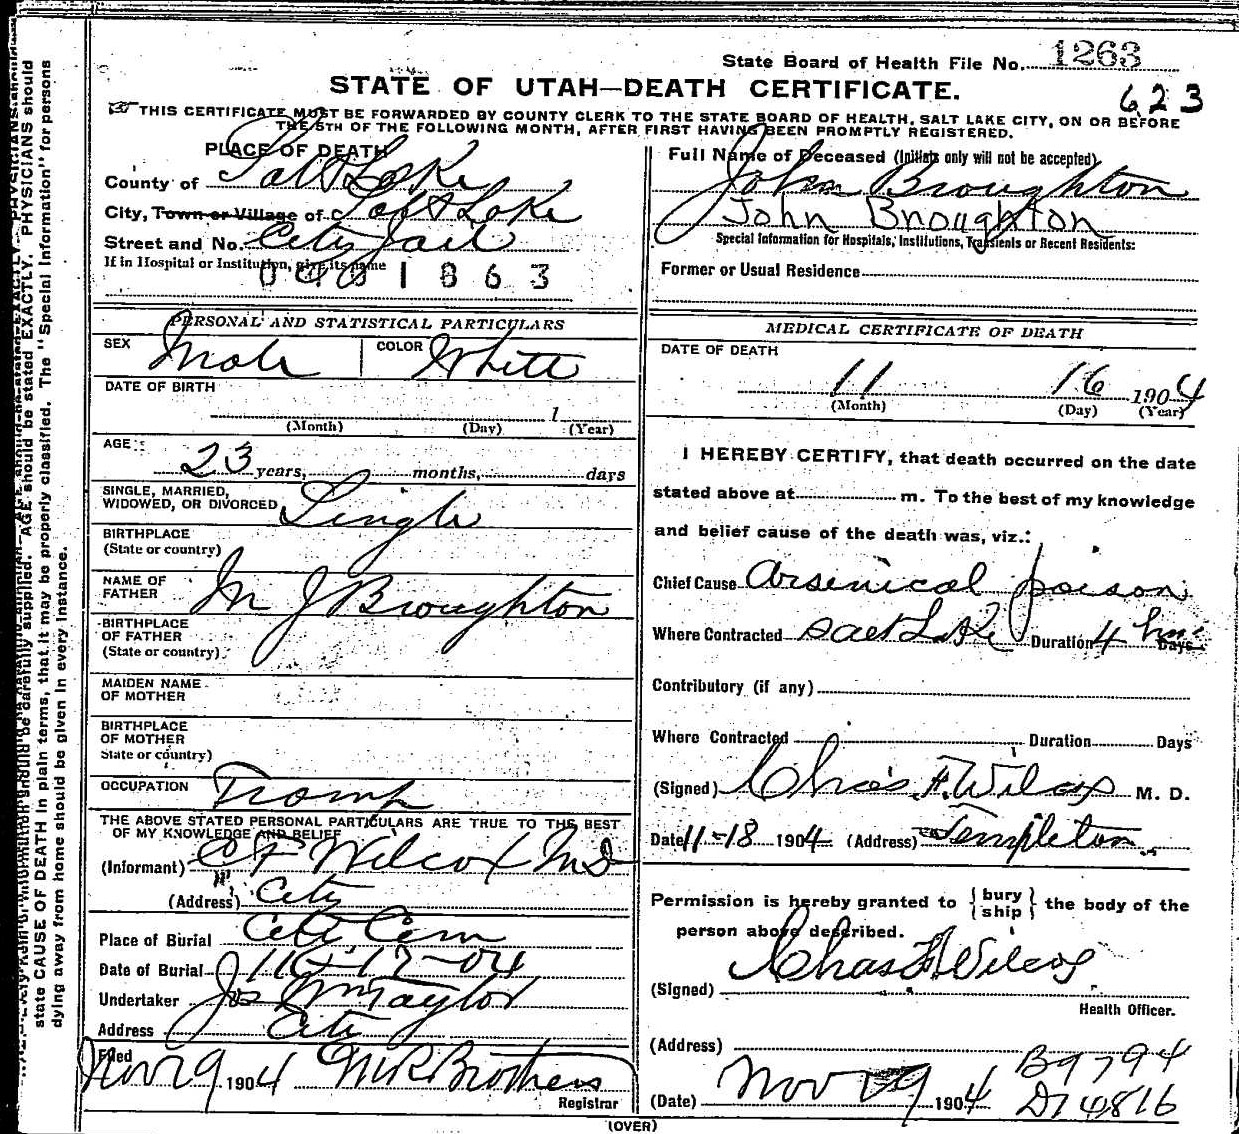 State Board of Health File No. 1263
STATE OF UTAH—DEATH CERTIFICATE.
623
THIS CERTIFICATE MUST BE FORWARDED BY COUNTY CLERK TO THE STATE BOARD OF HEALTH, SALT LAKE CITY, ON OR BEFORE
THE 5TH OF THE FOLLOWING MONTH, AFTER FIRST HAVING BEEN PROMPTLY REGISTERED.
PLACE OF DEATH
County of Salt Lake
City, Town or Village of Salt Lake
Street and No. City Jail
If in Hospital or Institution, give its name
0401863
PERSONAL AND STATISTICAL PARTICULARS
SEX Male COLOR White
DATE OF BIRTH
1
(Month) (Day) (Year)
AGE: 23 years, months, days
SINGLE, MARRIED,
WIDOWED, OR DIVORCED Single
BIRTHPLACE
(State or country)
NAME OF
FATHER M J Broughton
BIRTHPLACE
OF FATHER
(State or country)
MAIDEN NAME
OF MOTHER
BIRTHPLACE
OF MOTHER
State or country)
OCCUPATION Tramp
THE ABOVE STATED PERSONAL PARTICULARS ARE TRUE TO THE BEST
OF MY KNOWLEDGE AND BELIEF
(Informant) C F Wilcox MD
(Address) City
Place of Burial City Cem
Date of Burial 11-17-04
Undertaker Jos Wm Taylor
Address City
Filed Nov 29 1904 MR Brothers
Registrar
Full Name of Deceased (Initials only will not be accepted)
John Broughton
John Broughton
Special Information for Hospitals, Institutions, Transients or Recent Residents:
Former or Usual Residence
MEDICAL CERTIFICATE OF DEATH
DATE OF DEATH
11 16 1904
(Month) (Day) (Year)
I HEREBY CERTIFY, that death occurred on the date
stated above at m. To the best of my knowledge
and belief cause of the death was, viz.:
Chief Cause Arsenical poison
Where Contracted Salt Lake Duration 4 hrs Days
Contributory (if any)
Where Contracted Duration Days
(Signed) Chas. F. Wilcox M. D.
Date 11-18 1904 (Address) Templeton
Permission is hereby granted to { bury / ship } the body of the
person above described.
(Signed) Chas F Wilcox
Health Officer.
(Address) B9794
(Date) Nov 9 1904 D14816
(OVER)
PHYSICIANS should
state CAUSE OF DEATH in plain terms, that it may be properly classified. The "Special Information" for persons
dying away from home should be given in every instance.